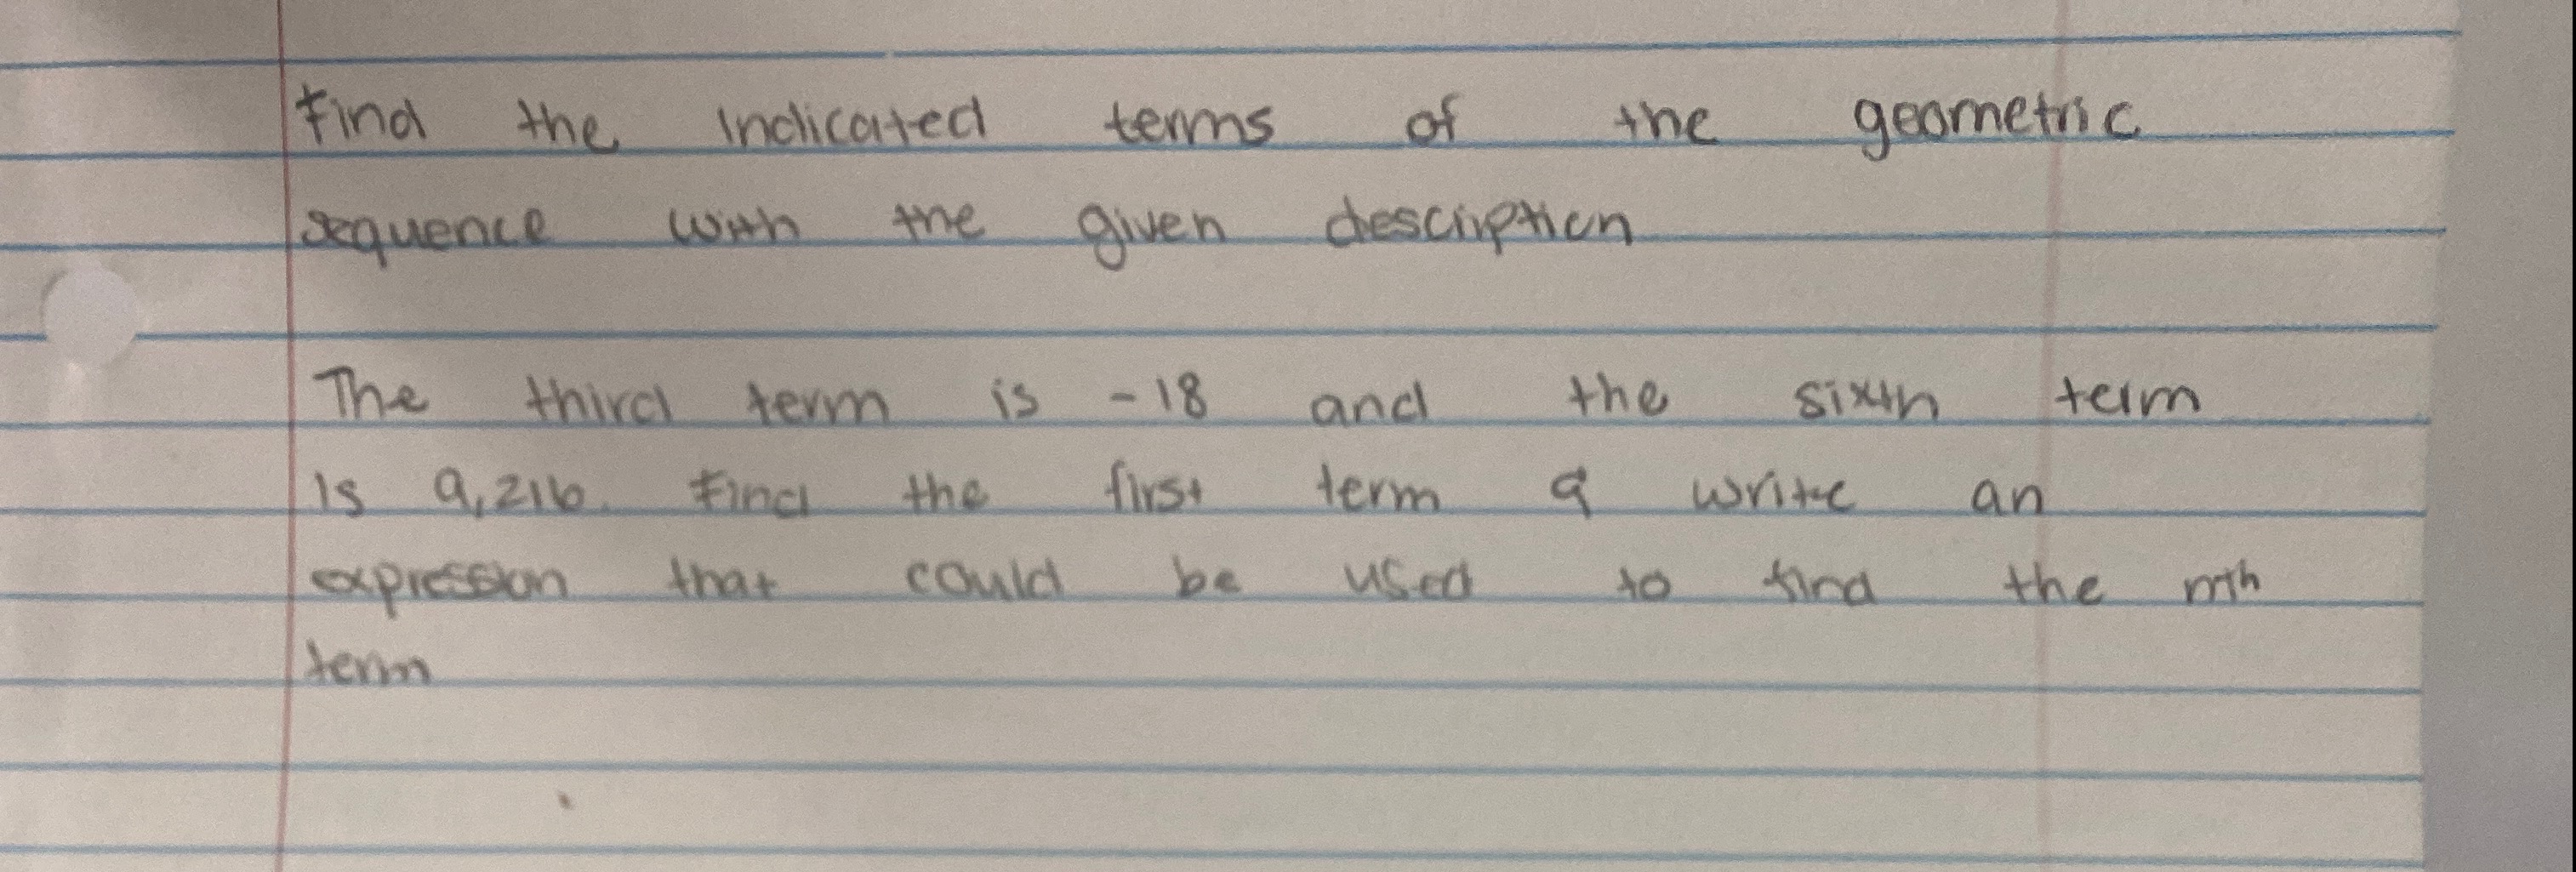 Find the indicated terms of the geometric
sequence with the given description
The third term is -18 and the sixth term
is 9,216. Find the first term & write an
expression that could be used to find the nth
term